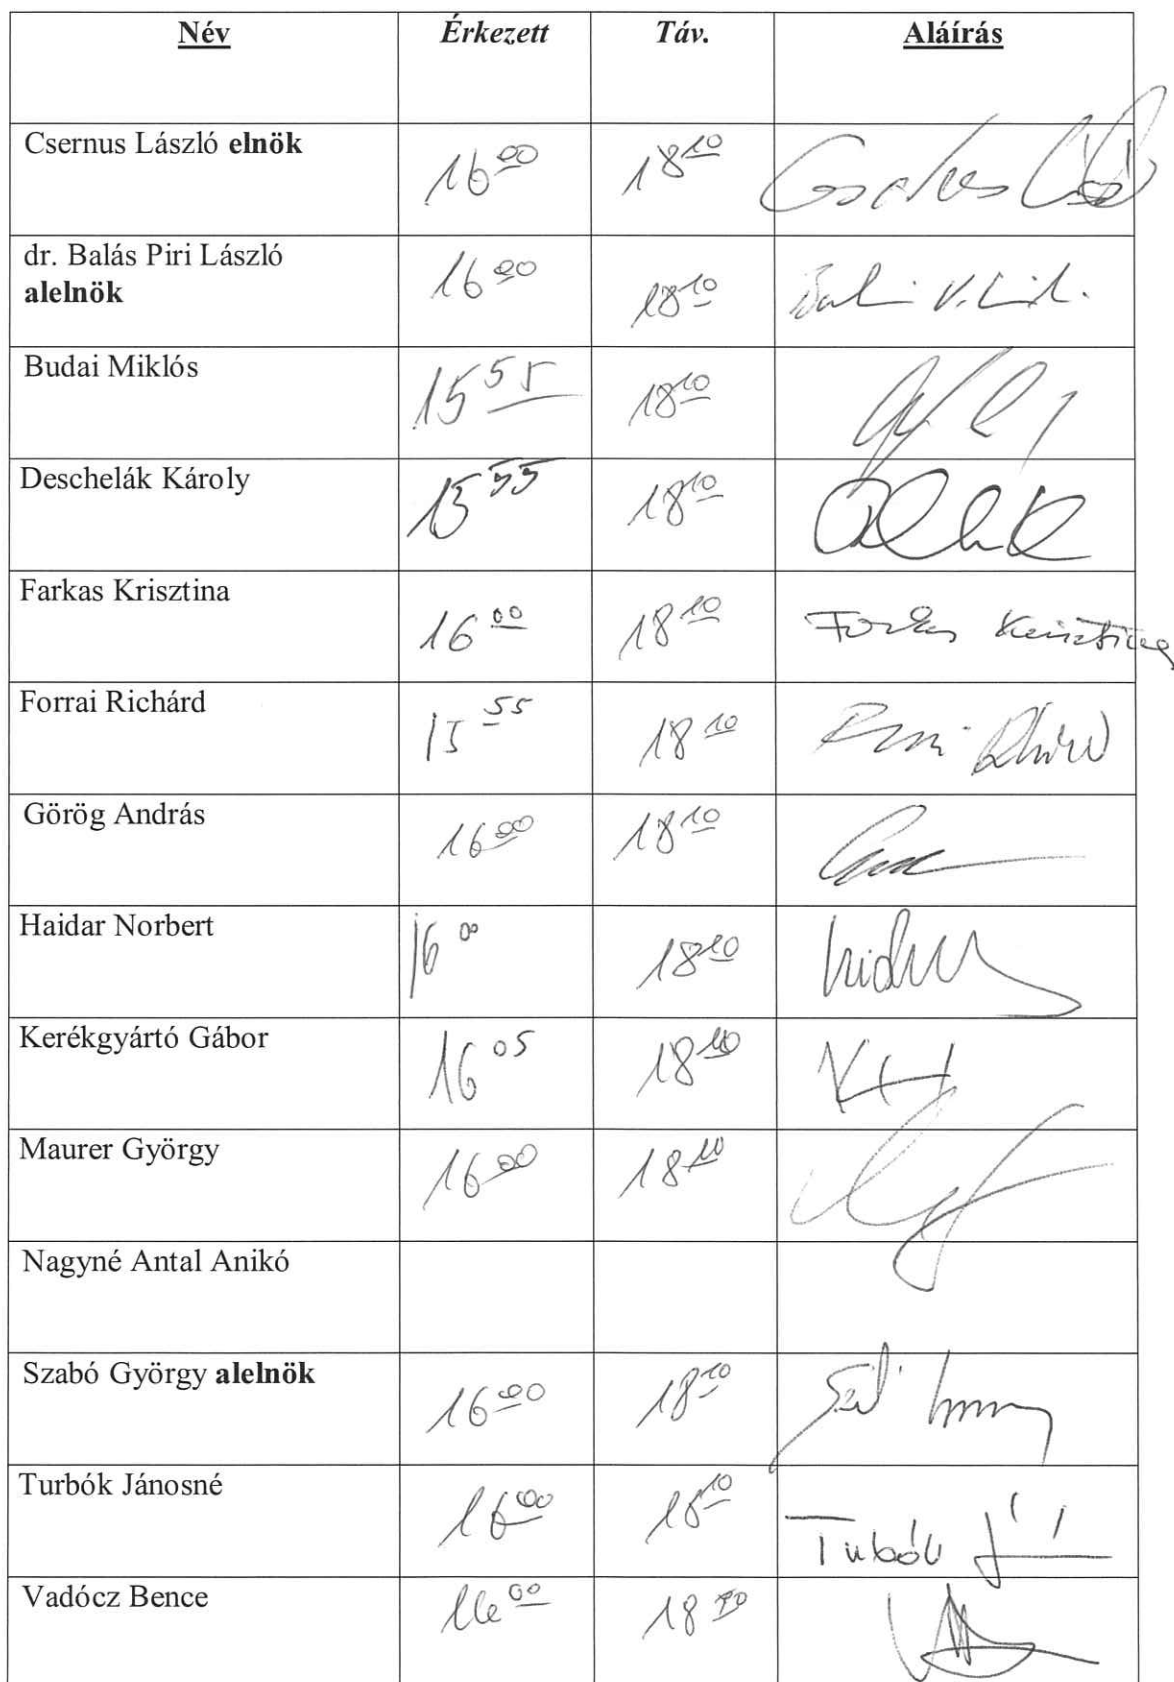 Név Érkezett Táv. Aláírás
Csernus László elnök 16 00 18 10 Csernus László
dr. Balás Piri László
alelnök 16 00 18 10
Budai Miklós 15 55 18 10
Deschelák Károly 15 55 18 10
Farkas Krisztina 16 00 18 10 Farkas Krisztina
Forrai Richárd 15 55 18 10
Görög András 16 00 18 10
Haidar Norbert 16 00 18 10
Kerékgyártó Gábor 16 05 18 10
Maurer György 16 00 18 10
Nagyné Antal Anikó
Szabó György alelnök 16 00 18 10
Turbók Jánosné 16 00 18 10 Turbók
Vadócz Bence 16 00 18 10